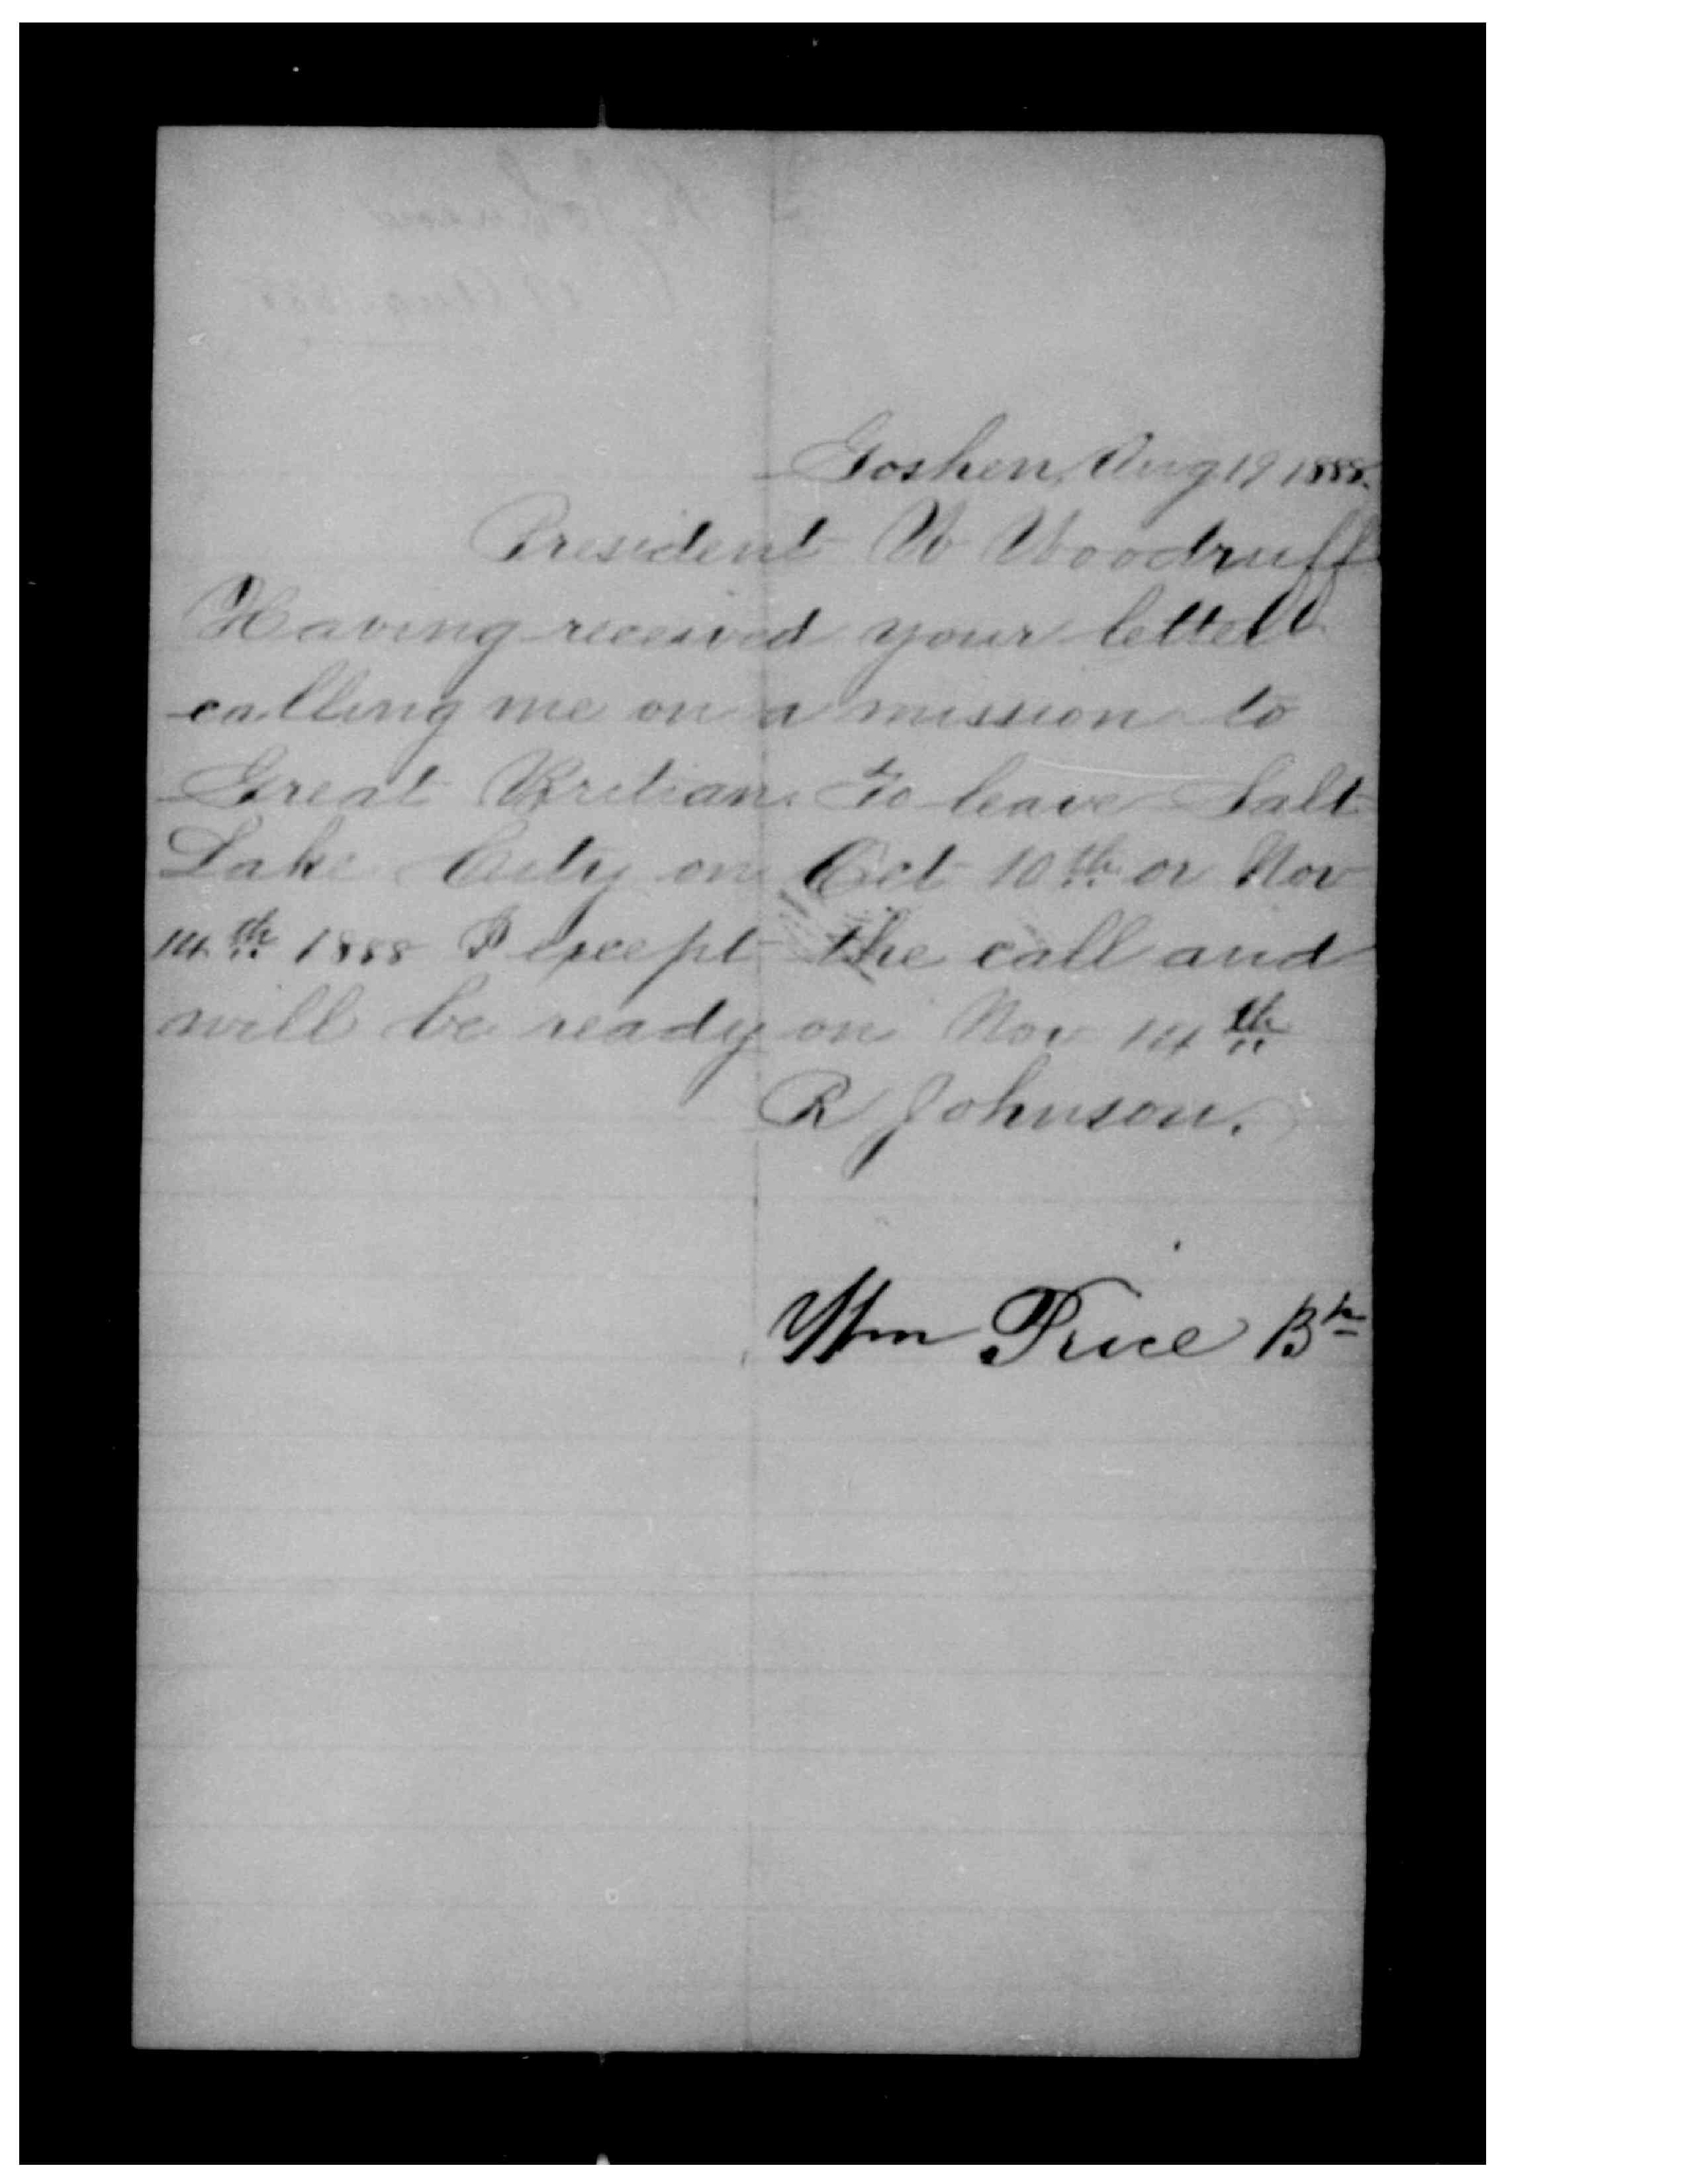 Goshen Aug 19 1888.
President W Woodruff
Having received your letter
calling me on a mission to
Great Britian. To leave Salt
Lake City on Oct 10th or Nov
14th 1888 I except the call and
will be ready on Nov 14th
R Johnson.
Wm Price Bp